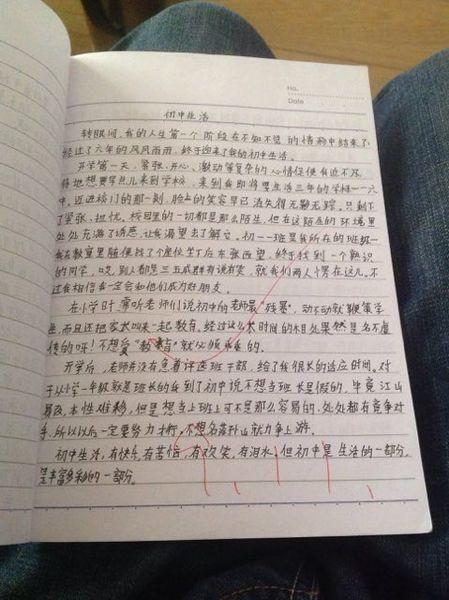 No.
Date
初中生活
转眼间，我的人生第一个阶段在不知不觉的情형中结束了，
经过了六年的风风雨雨，终于迎来了我的初中生活。
开学第一天，紧张、开心、激动等复杂的心情促使我迫不及
待地想要早点儿来到学校，来到我即将要生活三年的学校——六
中。迈进校门的那一刻，脸上的笑容早已消失得无影无踪。只剩下
了紧张、担忧。校园里的一切都是那么陌生，但在这陌生的环境里
处处充满了诱惑，让我渴望去了解它。初一一班是我所在的班级
我在教室里随便找了个座位坐下后东张西望，终于找到一个熟识
的同学，哎，别人都是三五成群有说有笑，就我们两人愣在这儿。不
过我相信我一定会和他们成为好朋友。
在小学时常听老师们说初中的老师最"残暴"，动不动就鞭策学
生，而且还把家长叫来一起教育。经过这么长时间的相处果然是名不虚
传的呀！不想受"教育"就必须乖乖的。
开学后，老师并没有急着评选班干部，给了我很长的适应时间。对
于从小学一年级就是班长的我到了初中说不想当班长是假的，毕竟江山
易改，本性难移，但是想当上班上可不是那么容易的，处处都有竞争对
手，所以以后一定要努力才行，不想名落孙山就力争上游。
初中生活，有快乐，有苦恼，有欢笑，有泪水，但初中是生活的一部分，
是丰富多彩的一部分。